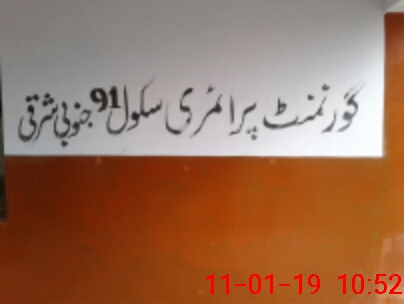 گورنمنٹ پرائمری سکول 91 جنوبی شرقی
11-01-19 10:52